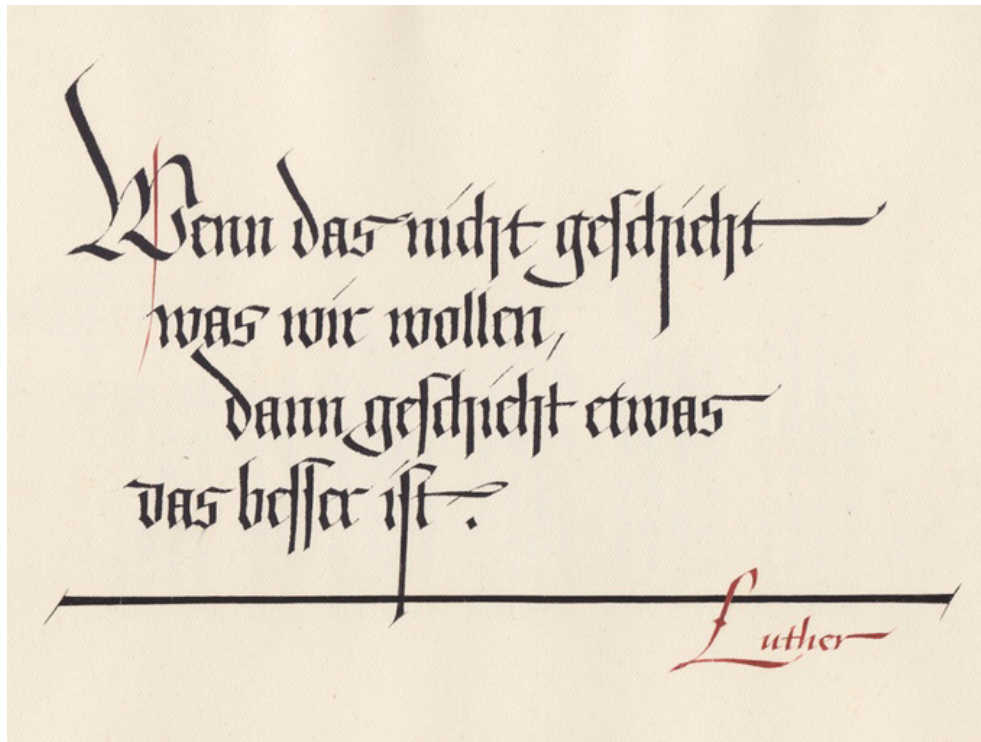 Wenn das nicht geschicht
was wir wollen,
dann geschicht etwas
das besser ist.
Luther